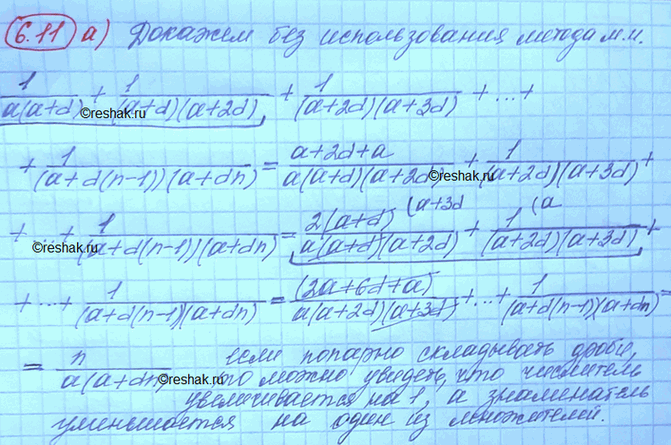 6.11 а) Докажем без использования метода м.и.
1/(a(a+d)) + 1/((a+d)(a+2d)) + 1/((a+2d)(a+3d)) + ... +
+ 1/((a+d(n-1))(a+dn)) = (a+2d+a)/(a(a+d)(a+2d)) + 1/((a+2d)(a+3d)) +
+ ... + 1/((a+d(n-1))(a+dn)) = 2(a+d) (a+3d /(a(a+d)(a+2d)) + 1 (a /((a+2d)(a+3d)) +
+ ... + 1/((a+d(n-1))(a+dn)) = (2a+6d+a)/(a(a+2d)(a+3d)) + ... + 1/((a+d(n-1))(a+dn)) =
= n/(a(a+dn) если попарно складывать дроби,
то можно увидеть, что числитель
увеличивается на 1, а знаменатель
уменьшается на один из множителей.
©reshak.ru
©reshak.ru
©reshak.ru
©reshak.ru